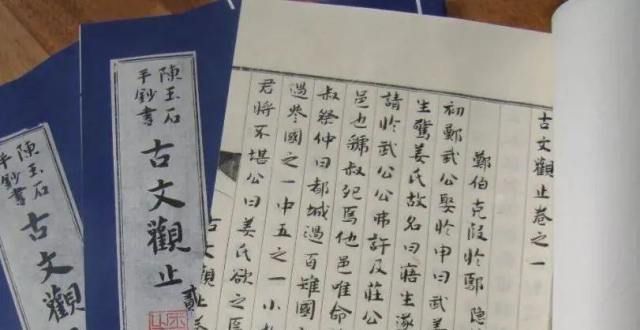 陳玉石
手鈔書
古文觀止
陳玉石
手鈔書
古文觀
古文觀止卷之一
鄭伯克段於鄢 隱
初鄭武公娶於申曰武姜
生驚姜氏故名曰寤生遂
請於武公公弗許及莊公
邑也虢叔死焉他邑唯命
叔祭仲曰都城過百雉國
過參國之一中五之一小
君將不堪公曰姜氏欲之
古文觀止